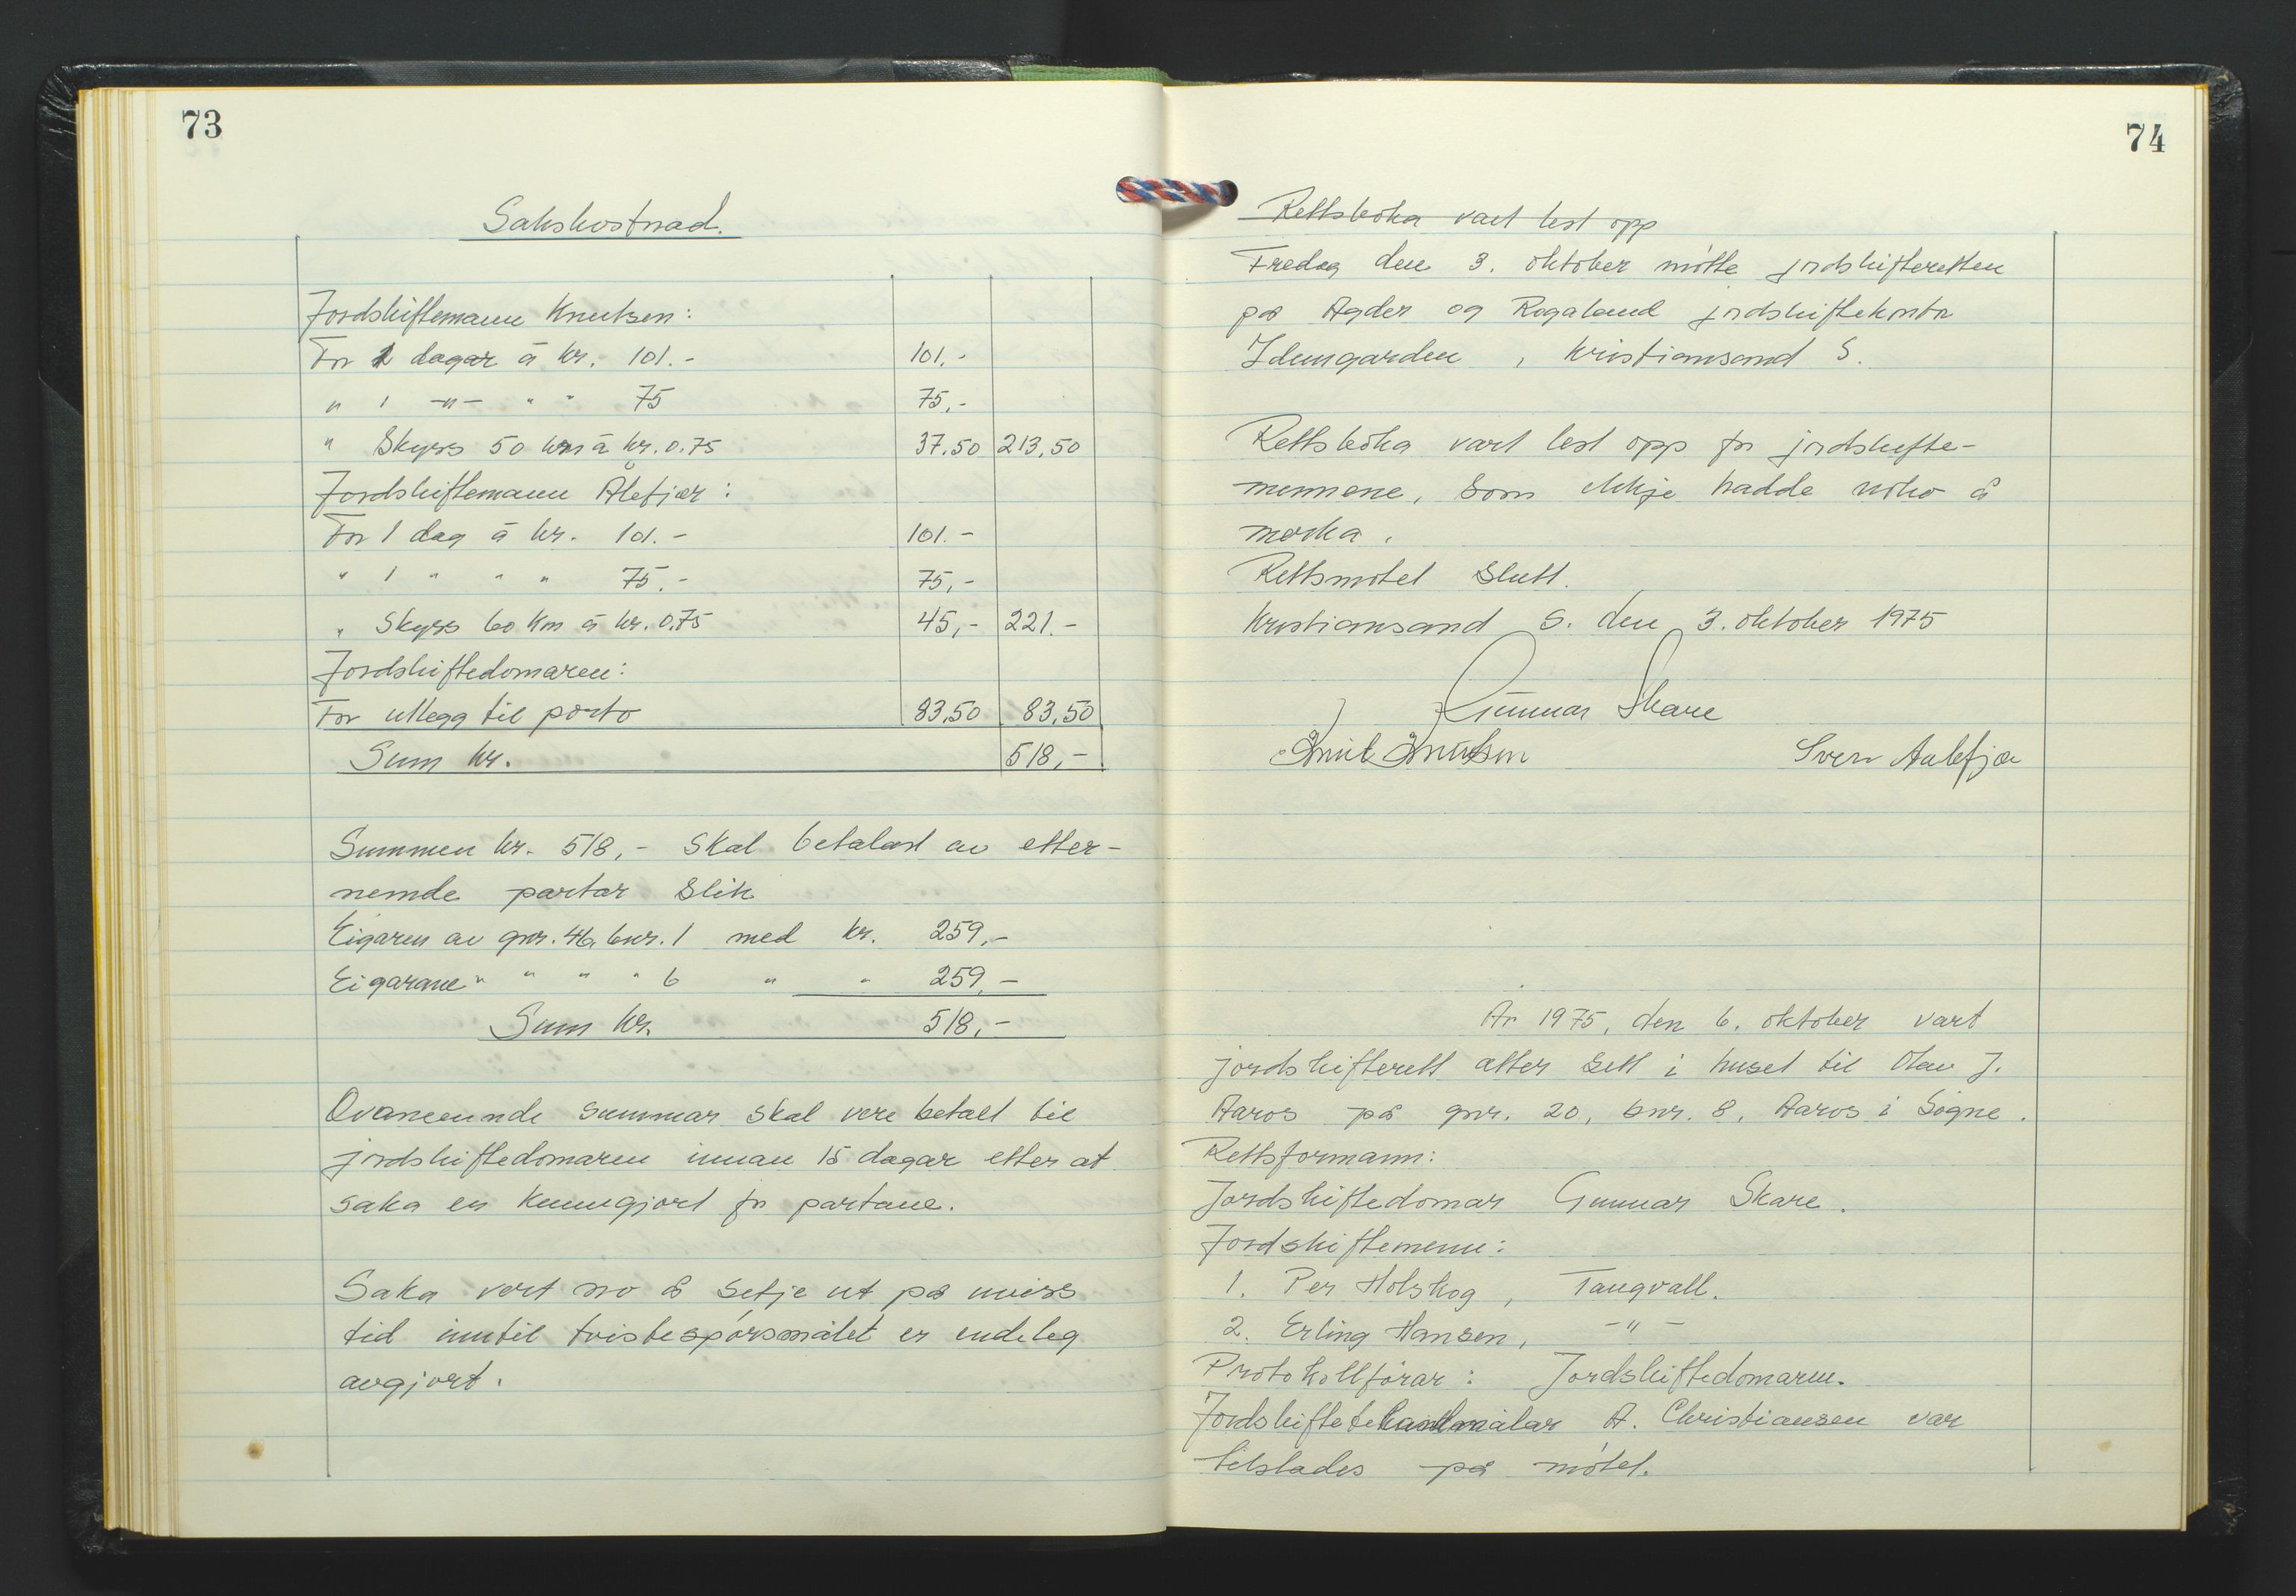 73
Sakskostnad.
Jordskiftemann Knutsen:
For 1 dagar á kr. 101.- 101.-
" 1 -"- " " 75 75,-
" Skyss 50 km á kr. 0.75 37.50 213,50
Jordskiftemann Ålefjær:
For 1 dag á kr. 101.- 101.-
" 1 " " " 75.- 75,-
" Skyss 60 km á kr. 0.75 45,- 221.-
Jordskiftedomaren:
For utlegg til porto 83,50 83,50
Sum kr. 518,-
Summen kr. 518,- skal betalast av etter-
nemde partar slik
Eigaren av gnr. 46, bnr. 1 med kr. 259,-
Eigarane " " " " 6 " " 259,-
Sum kr. 518,-
Ovanemnde summar skal vere betalt til
jordskiftedomaren innan 15 dagar etter at
saka er kunngjort for partane.
Saka vert no å setje ut på uviss
tid inntil tvistespørsmålet er endeleg
avgjort.
74
Rettsboka vart lest opp
Fredag den 3. oktober møtte jordskifteretten
på Agder og Rogaland jordskiftekontor
Idungarden, Kristiansand S.
Rettsboka vart lest opp for jordskifte-
mennene, som ikkje hadde noko å
merka.
Rettsmøtet slutt.
Kristiansand S. den 3. oktober 1975
Gunnar Skare
Knut Knutsen Sven Aalefjær
År 1975, den 6. oktober vart
jordskifterett atter sett i huset til Olav J.
Aaros på gnr. 20, bnr. 8, Aaros i Søgne.
Rettsformann:
Jordskiftedomar Gunnar Skare.
Jordskiftemenn:
1. Per Holskog, Tangvall.
2. Erling Hansen, -"-
Protokollførar: Jordskiftedomaren.
A. Christiansen var
tilstades på møtet.